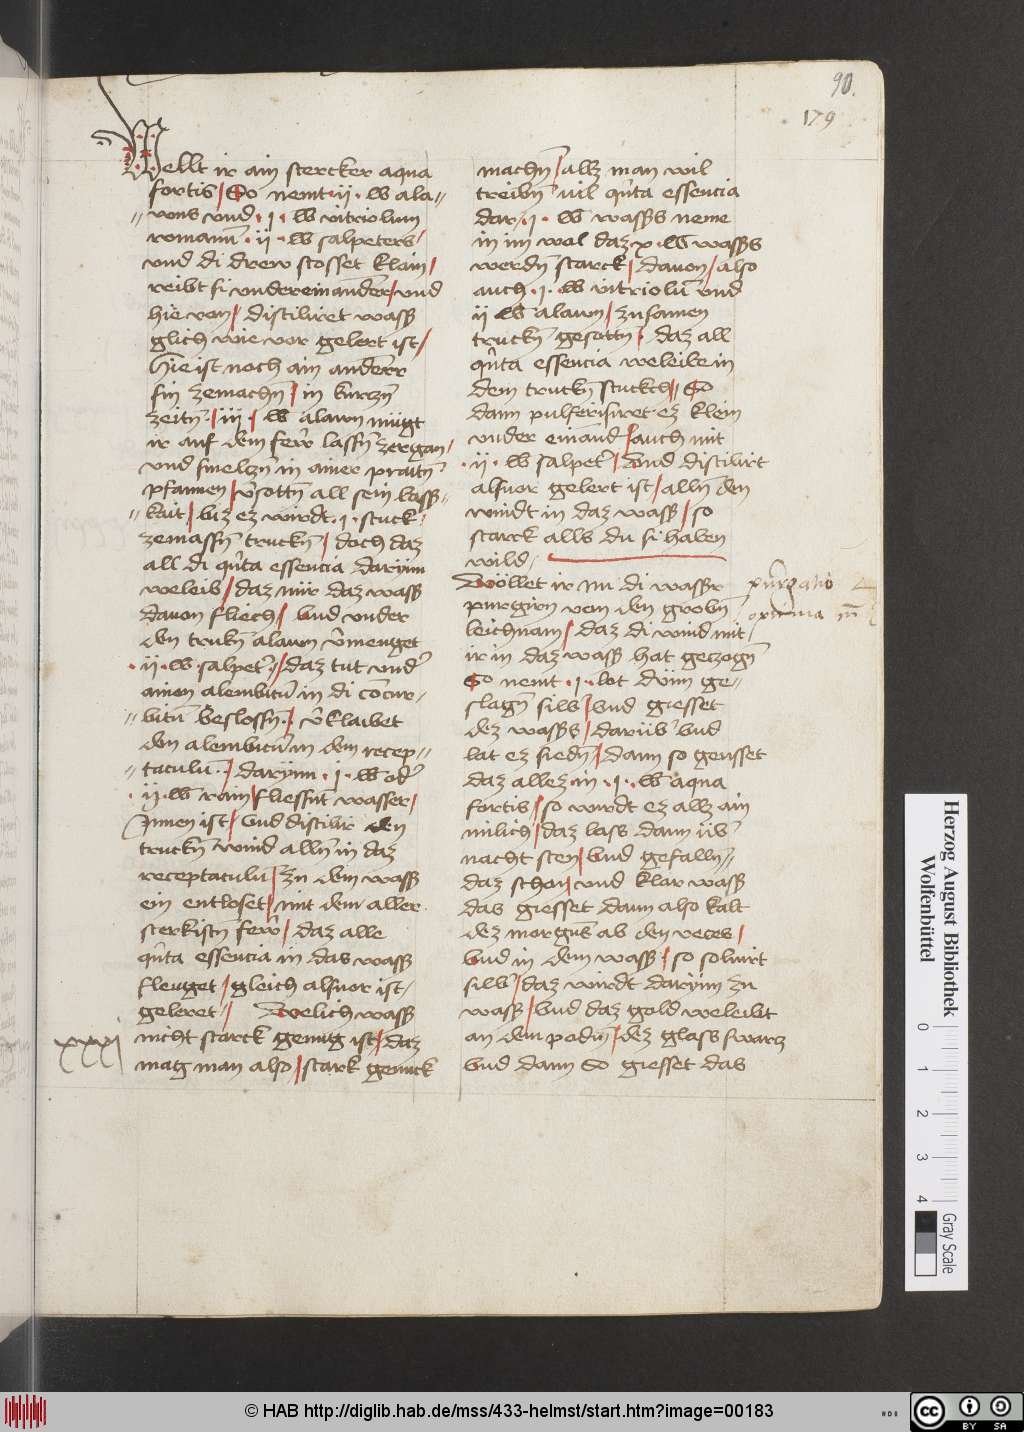 90.
179
Wellt ir ain stercker aqua
fortis / So nemt · ii · ℔ ala=
=uns und · i · ℔ vitriolum
romanū · ii · ℔ salpeters /
und di drew stosset klain /
reibt si undereinander / und
hie von / distiliret wasß
glich wie vor gelert ist /
Hie ist noch ain anderr
sin zemachn̄ / in kurczn̄
zeitn̄ · / iii / ℔ alaun mügt
ir auf dem fewr lassn̄ zergan /
und smelczn̄ in ainer praitn̄
pfannen / v̄sottn̄ all sein wasß=
=kait / biz ez wirdt · i · stuck /
zemassn̄ truckn̄ / doch daz
all di qn̄ta essencia darynn
weleib / daz nür daz wasß
dauon fliech / Und under
den trukn̄ alaun v̄menget
· ii · ℔ salpet̄ · / daz tut und̄
ainen alembicū in di concur=
=bitū v̄slossn̄ · / v̄klaibet
den alembicū in dem recep=
=taculū · / darynn · i · ℔ od̄
· ii · ℔ rain fliessnt wasser /
Innen ist / Und distilir den
truckn̄ wind alln̄ in daz
receptaculū / zu dem wasß
ein entloset / mit dem aller
sterkistn̄ fewr / daz alle
qn̄ta essencia in das wasß
flenget / gleich alsuor ist /
geleret / Welich wasß
nicht starck genug ist / daz
mag man also / stark genuck
xxxi
machn̄ / allz man wil
treibn̄ vil qn̄ta essencia
dar · i · ℔ wasßs neme
in im wol daz x · ℔ wasßs
werdn̄ starck / dauon / also
auch · i · ℔ vitriolū und
ii ℔ alaun / zusamen
truckn̄ gesottn̄ · daz all
qn̄ta essencia weleibe in
dem truckn̄ stuckch / So
dann pulferisiret ez klein
under einand̄ / auch mit
· ii · ℔ salpet̄ / Und distilirt
alsuor gelert ist / alln̄ den
windt in daz wasß / so
starck alls du si haben
wild ·
Wöllet ir nu di wasßr
purgirn von den grobn̄
leichnam / daz di wind mit /
ir in daz wasß hat geczogn̄
So nemt · i · lot dünn ge=
slagn̄ silb̄ / Und giesset
dez wasßs / darüb̄ Und
lat ez siedn̄ / dann so geusset
daz allez in · i · ℔ aqua
fortis / so wirdt ez allz ain
milich / daz lass dann üb̄
nacht sten / Und gefalln̄=
daz schon / und klar wasß
das giesset dann also kalt
dez morgns ab den veces /
Und in dem wasß / so soluirt
silb̄ / daz wirdt darynn zu
wasß / Und daz gold weleibt
an dem podn̄ / dez glass swarcz
Und dann So giesset das
purgatio
optima
Herzog August Bibliothek
Wolfenbüttel
0 1 2 3 4
Gray Scale
© HAB http://diglib.hab.de/mss/433-helmst/start.htm?image=00183
cc BY SA